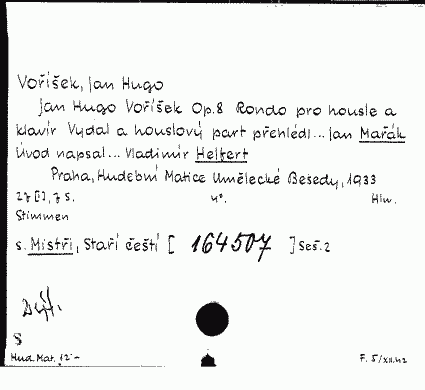 Voříšek, Jan Hugo
Jan Hugo Voříšek Op.8 Rondo pro housle a
klavír Vydal a houslový part přehlédl... Jan Mařák
Úvod napsal... Vladimír Helfert
Praha, Hudební Matice Umělecké Besedy, 1933
27 [1], 7 S. 4°. Hlw.
Stimmen
s. Mistři, Staří čeští [ 164507 ] Seš. 2
8
Hud. Mat. 12 -
F. 5/XII.42